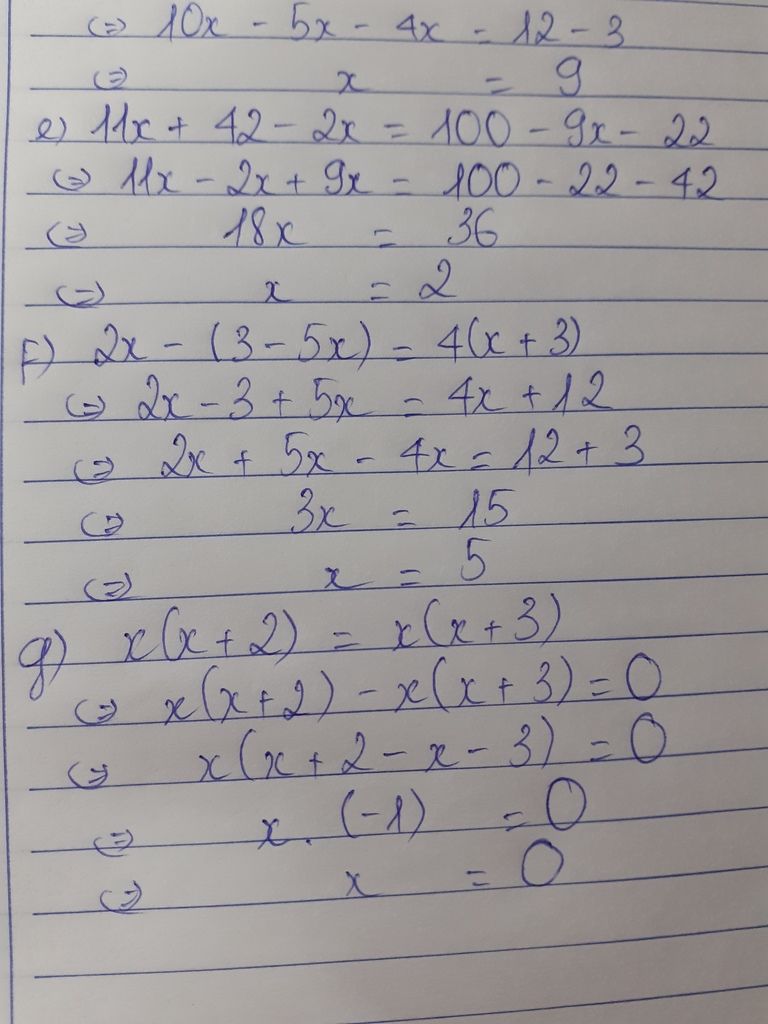 ⇔ 10x - 5x - 4x = 12 - 3
⇔ x = 9
e) 11x + 42 - 2x = 100 - 9x - 22
⇔ 11x - 2x + 9x = 100 - 22 - 42
⇔ 18x = 36
⇔ x = 2
F) 2x - (3 - 5x) = 4(x + 3)
⇔ 2x - 3 + 5x = 4x + 12
⇔ 2x + 5x - 4x = 12 + 3
⇔ 3x = 15
⇔ x = 5
g) x(x + 2) = x(x + 3)
⇔ x(x + 2) - x(x + 3) = 0
⇔ x(x + 2 - x - 3) = 0
⇔ x . (-1) = 0
⇔ x = 0